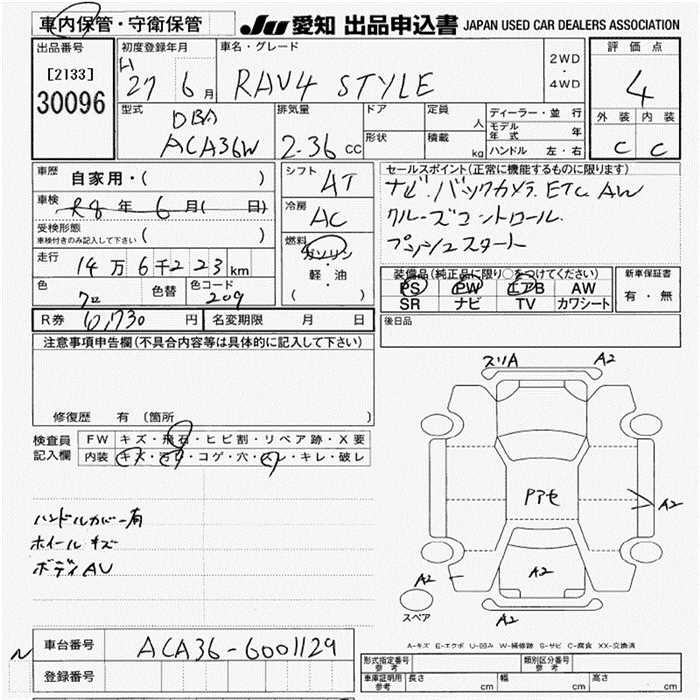 車内保管・守衛保管
JU 愛知 出品申込書 JAPAN USED CAR DEALERS ASSOCIATION
出品番号
[2133]
30096
初度登録年月
H
27 6月
車名・グレード
RAV4 STYLE
2WD
・
4WD
評価点
4
外装 内装
C C
型式
DBA
ACA36W
排気量
2.36 CC
ドア
形状
定員
人
積載
kg
ディーラー・並行
モデル年式 年
ハンドル 左・右
車歴
自家用・( )
車検
R8 年 6 月( 日)
受検形態
車検付きのみ記入して下さい ( )
走行
14万6千223km
色
色替
色コード
209
シフト
AT
冷房
AC
燃料
ガソリン
・
軽・油
( )
セールスポイント(正常に機能するものに限ります)
ナビ.バックカメラ.ETC AW
クルーズコントロール.
プッシュスタート
装備品(純正品に限り○をつけてください)
PS PW エアB AW
SR ナビ TV カワシート
新車保証書
有・無
R券 円
名変期限 月 日
後日品
注意事項申告欄(不具合内容等は具体的に記入して下さい)
修復歴 有 〔箇所 〕
検査員
記入欄
FW キズ・飛石・ヒビ割・リペア跡・X要
内装 キズ・汚れ・コゲ・穴・スレ・キレ・破レ
ハンドルカバー有
ホイールキズ
ボディAU
スリA A2
Pアセ
A2
A2
A2
A2
スペア
A-キズ E-エクボ U-凹み W-補修跡 S-サビ C-腐食 XX-交換済
N
車台番号
ACA36-6001129
登録番号
形式指定番号
参考
類別区分番号
参考
車庫証明用
参考
長さ cm 幅 cm 高さ cm